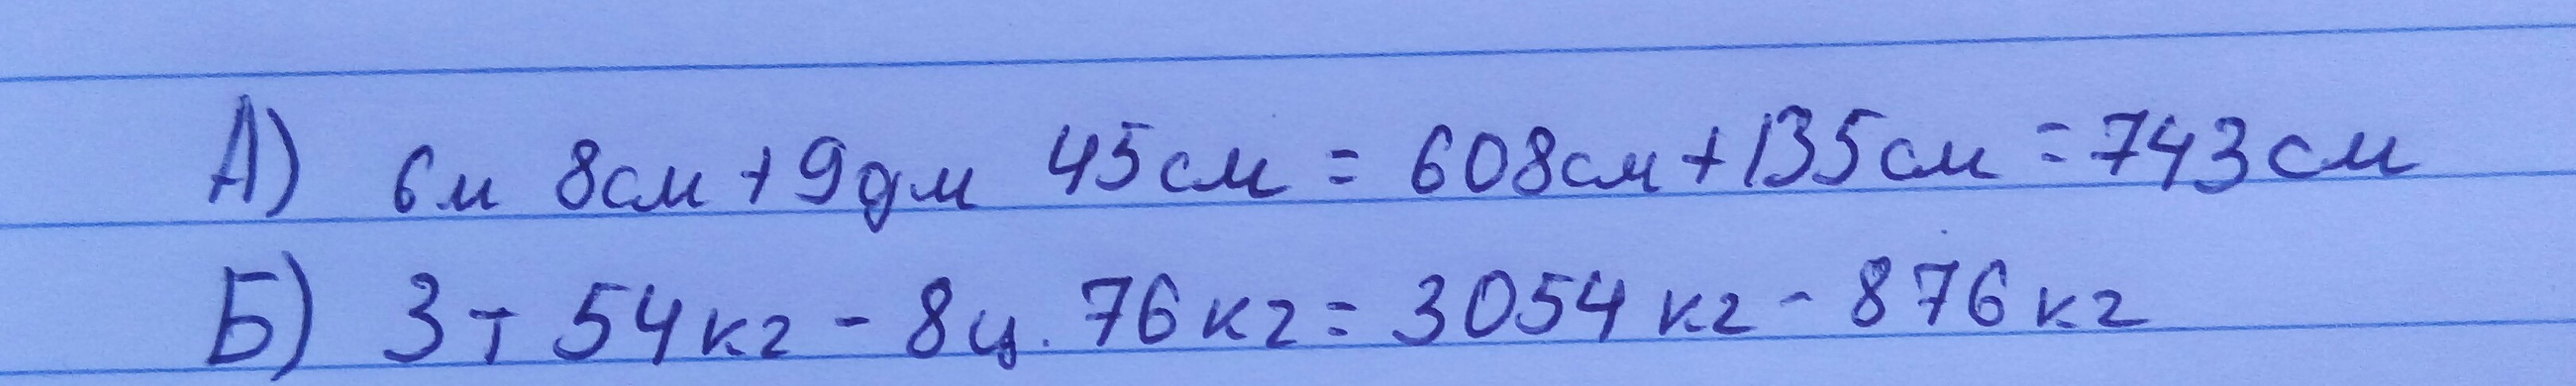 А) 6м 8см + 9дм 45см = 608см + 135см = 743см
Б) 3т 54кг - 8ц. 76кг = 3054кг - 876кг